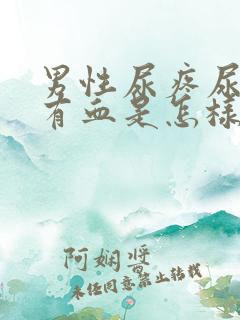 男性尿疼尿
有血是怎样
阿娴鸳
未经同意禁止转载